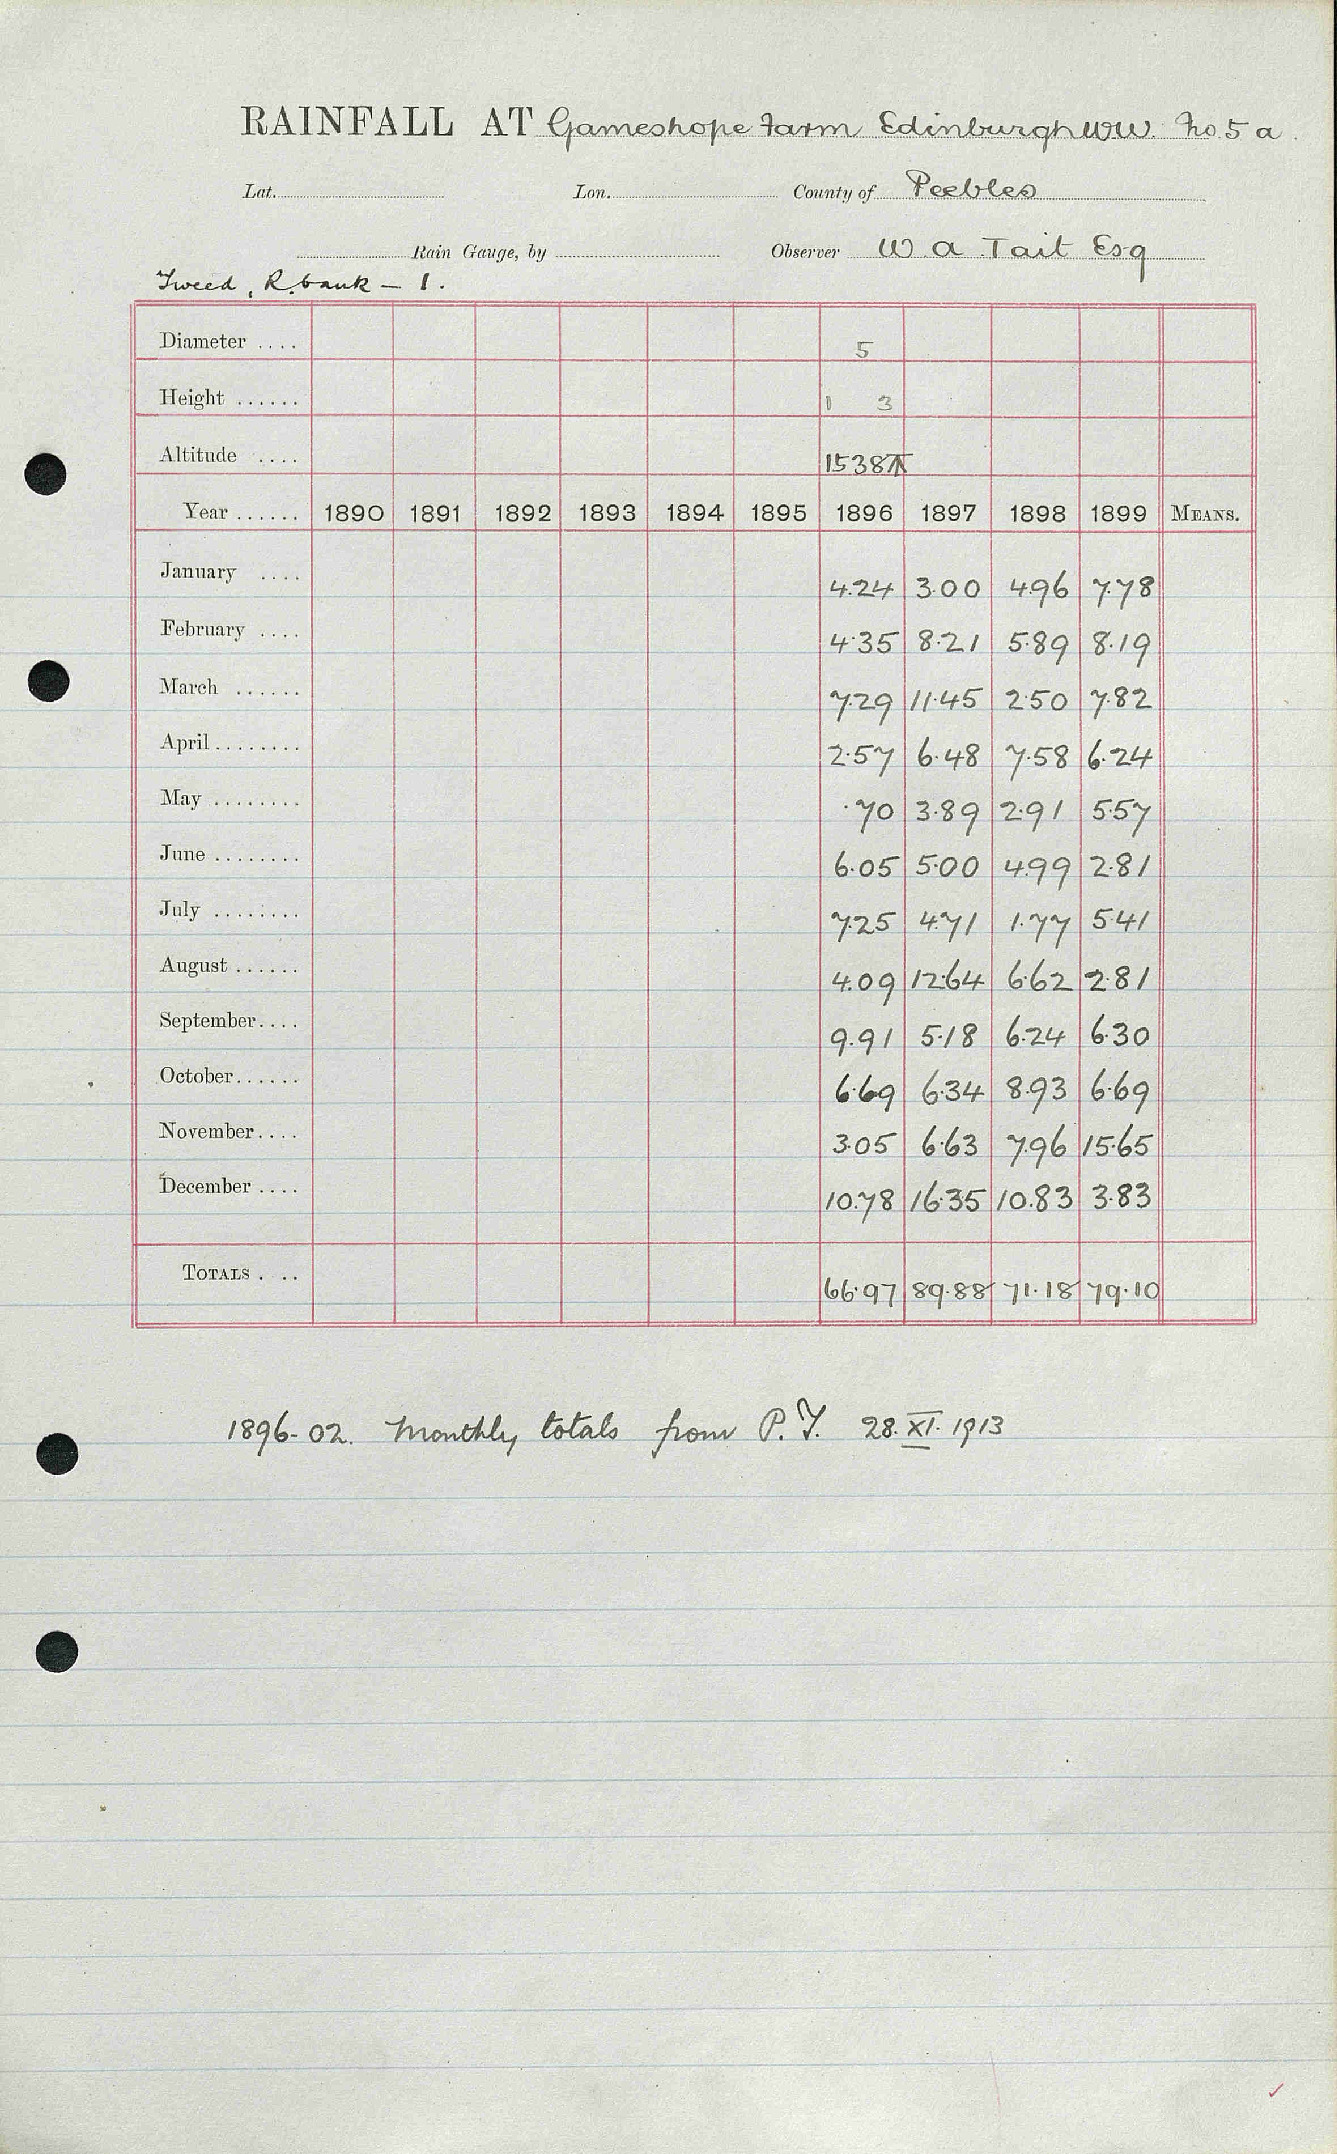 RAINFALL AT Gameshope Farm Edinburgh WW. No 5 a
Lat. Lon. County of Peebles
Rain Gauge, by Observer W A Tait Esq
Tweed, R. bank – 1.
Diameter .... 5
Height ...... 1 3
Altitude .... 1538
Year ...... 1890 1891 1892 1893 1894 1895 1896 1897 1898 1899 MEANS.
January .... 4.24 3.00 4.96 7.78
February .... 4.35 8.21 5.89 8.19
March ...... 7.29 11.45 2.50 7.82
April ........ 2.57 6.48 7.58 6.24
May ........ .70 3.89 2.91 5.57
June ........ 6.05 5.00 4.99 2.81
July ........ 7.25 4.71 1.77 5.41
August ...... 4.09 12.64 6.62 2.81
September.... 9.91 5.18 6.24 6.30
October...... 6.69 6.34 8.93 6.69
November.... 3.05 6.63 7.96 15.65
December .... 10.78 16.35 10.83 3.83
TOTALS . .. 66.97 89.88 71.18 79.10
1896-02. Monthly totals from P.T. 28.XI.1913